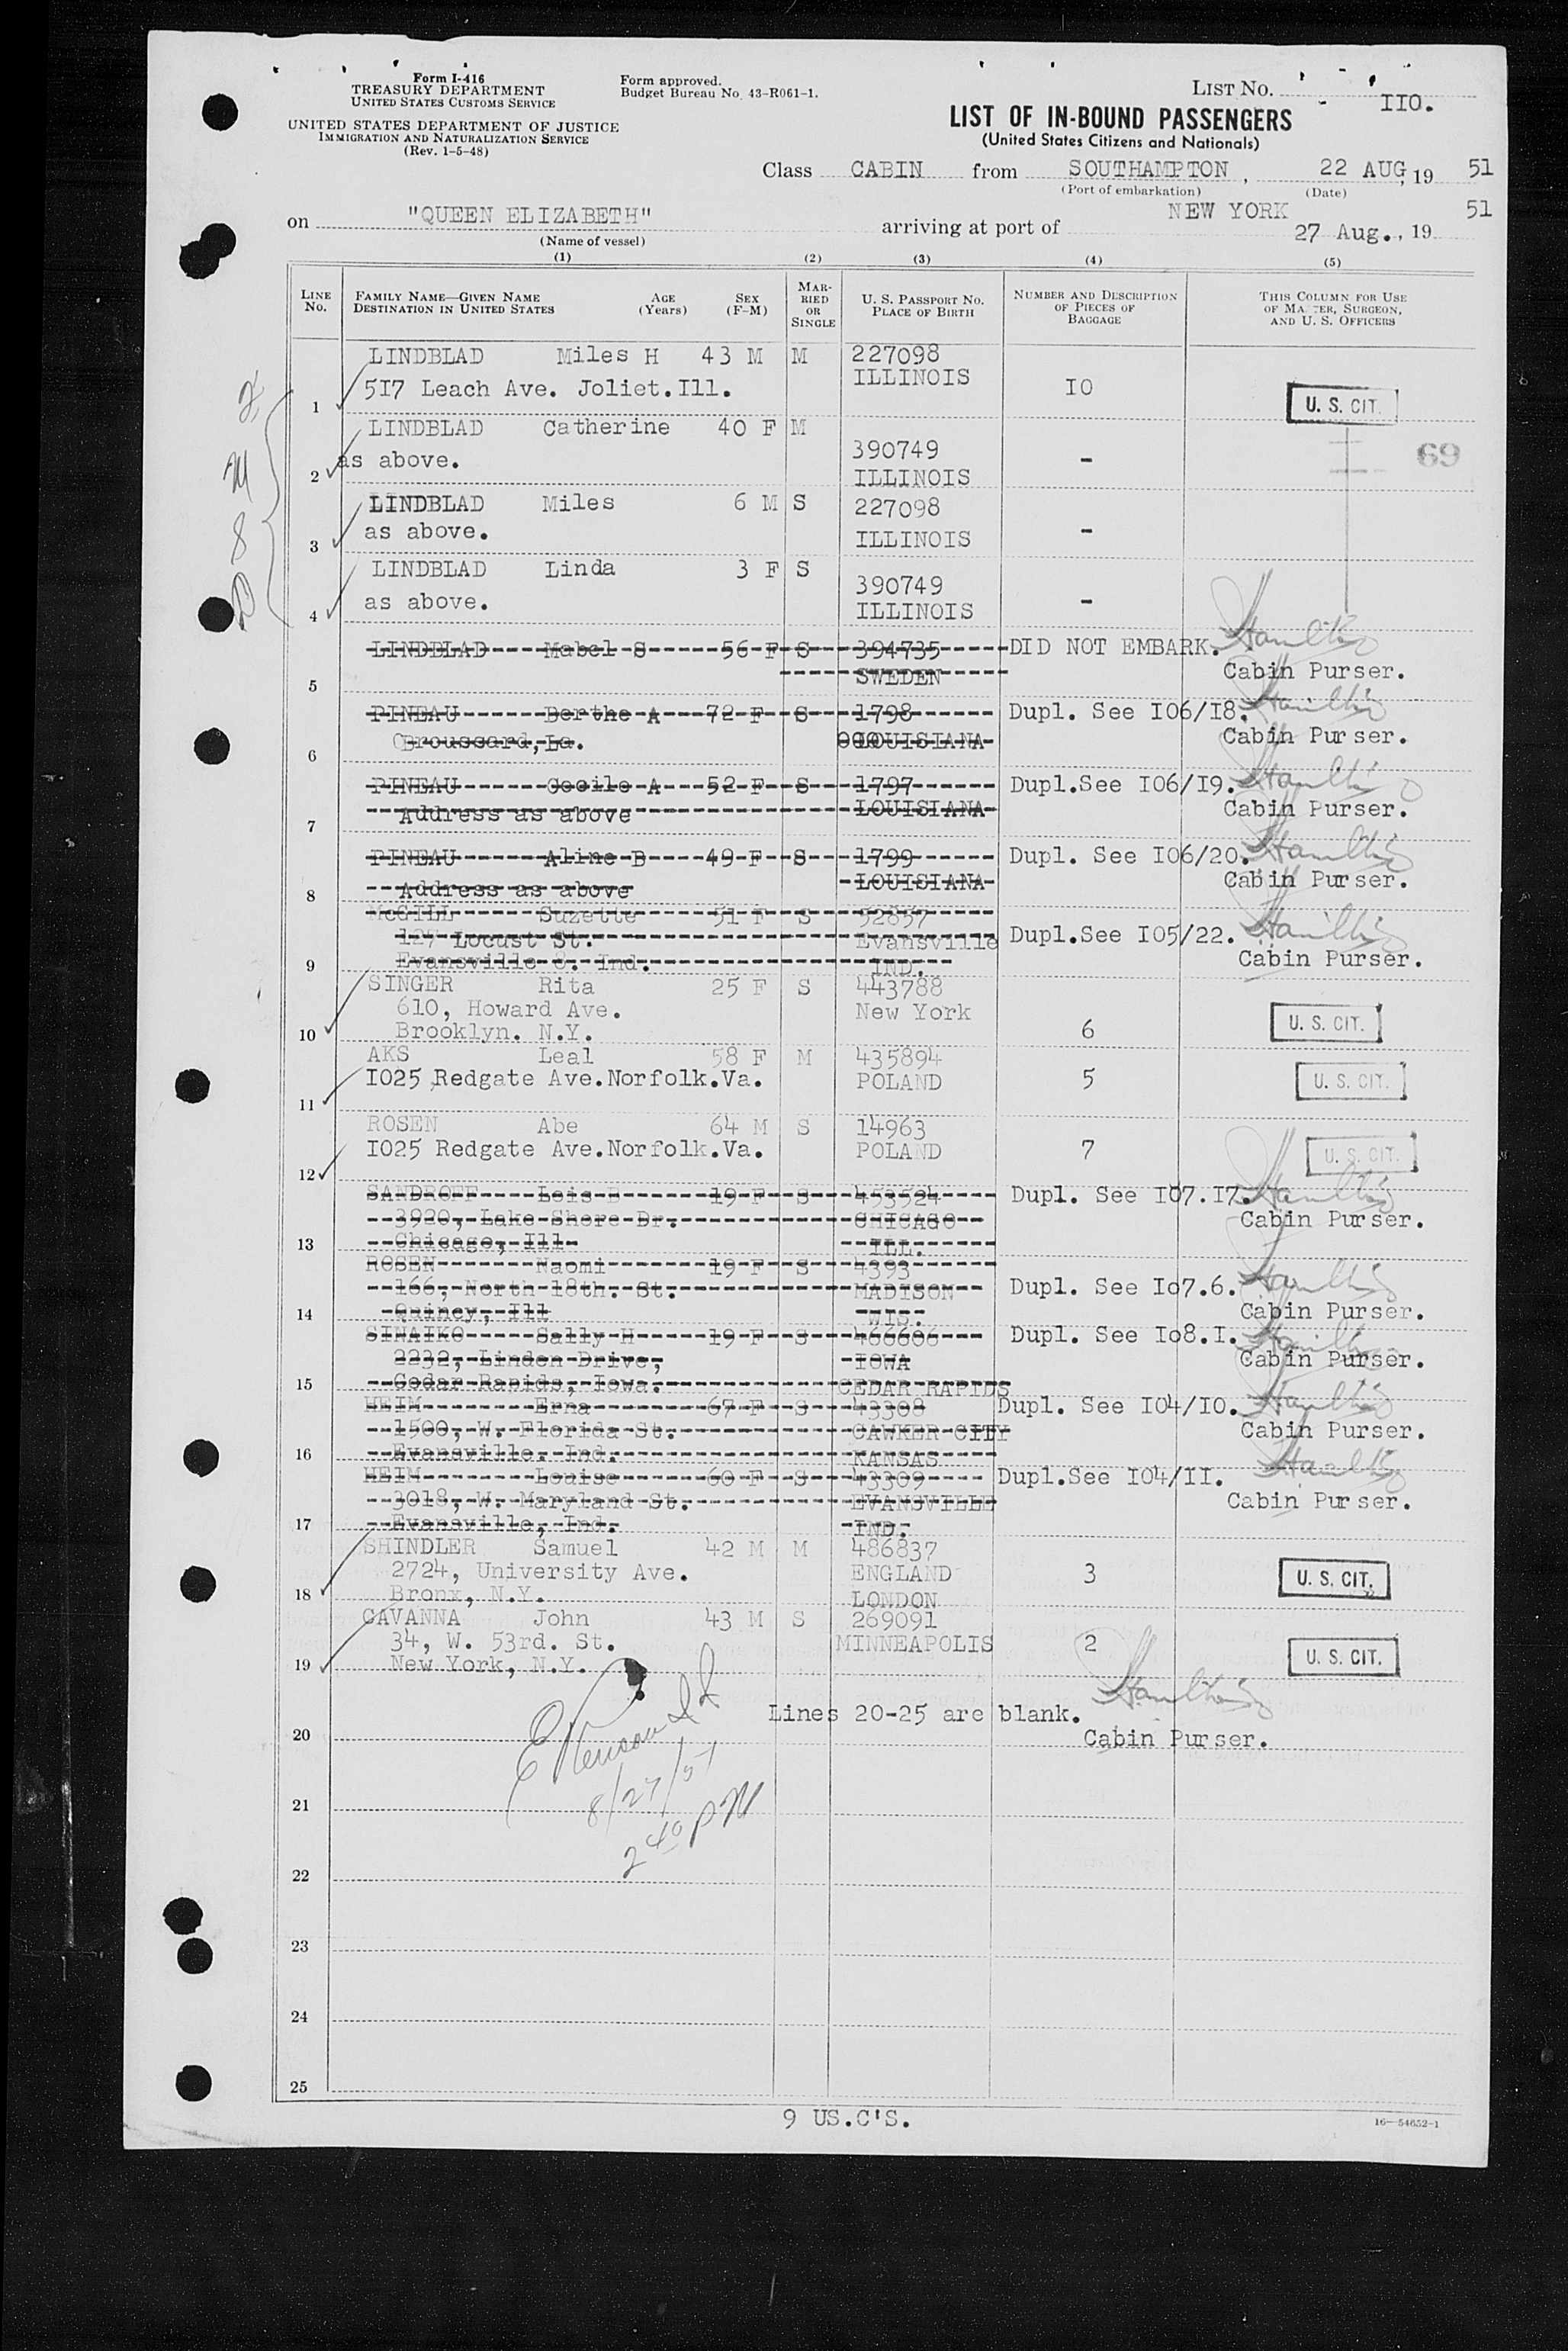 Form I-416
TREASURY DEPARTMENT
UNITED STATES CUSTOMS SERVICE
UNITED STATES DEPARTMENT OF JUSTICE
IMMIGRATION AND NATURALIZATION SERVICE
(Rev. 1-5-48)
Form approved.
Budget Bureau No. 43-R061-1.
LIST NO. IIO.
LIST OF IN-BOUND PASSENGERS
(United States Citizens and Nationals)
Class CABIN from SOUTHAMPTON, 22 AUG, 19 51
(Port of embarkation) (Date)
on "QUEEN ELIZABETH" arriving at port of NEW YORK 27 Aug., 19 51
(Name of vessel)
(1) (2) (3) (4) (5)
LINE NO.
FAMILY NAME—GIVEN NAME AGE SEX
DESTINATION IN UNITED STATES (Years) (F-M)
MARRIED OR SINGLE
U. S. PASSPORT NO.
PLACE OF BIRTH
NUMBER AND DESCRIPTION
OF PIECES OF
BAGGAGE
THIS COLUMN FOR USE
OF MASTER, SURGEON,
AND U. S. OFFICERS
LINDBLAD Miles H 43 M M 227098
5I7 Leach Ave. Joliet.Ill. ILLINOIS IO
1 U. S. CIT.
LINDBLAD Catherine 40 F M
as above. 390749 - 69
2 ILLINOIS
LINDBLAD Miles 6 M S 227098
as above. ILLINOIS -
3
LINDBLAD Linda 3 F S 390749
as above. ILLINOIS -
4
LINDBLAD Mabel S 56 F S 394735 DID NOT EMBARK. Hamilton
SWEDEN Cabin Purser.
5
PINEAU Berthe A 72 F S 1798 Dupl. See I06/I8. Hamilton
Broussard, La. LOUISIANA Cabin Purser.
6
PINEAU Cecile A 52 F S 1797 Dupl.See I06/I9. Hamilton
Address as above LOUISIANA Cabin Purser.
7
PINEAU Aline B 49 F S 1799 Dupl. See I06/20. Hamilton
Address as above LOUISIANA Cabin Purser.
8
McGILL Suzette 51 F S 52857
127 Locust St. Evansville Dupl.See I05/22. Hamilton
Evansville 8. Ind. IND. Cabin Purser.
9
SINGER Rita 25 F S 443788
610, Howard Ave. New York
10 Brooklyn. N.Y. 6 U. S. CIT.
AKS Leal 58 F M 435894
I025 Redgate Ave.Norfolk.Va. POLAND 5 U. S. CIT.
11
ROSEN Abe 64 M S 14963
I025 Redgate Ave.Norfolk.Va. POLAND 7 U. S. CIT.
12
SANDROFF Lois B 19 F S 453524 Dupl. See I07.I7. Hamilton
3920, Lake Shore Dr. CHICAGO Cabin Purser.
13 Chicago, Ill ILL.
ROSEN Naomi 19 F S 4393
166, North 18th. St. MADISON Dupl. See Io7.6. Hamilton
14 Quincy, Ill WIS. Cabin Purser.
SINAIKO Sally H 19 F S 466606 Dupl. See Io8.I. Hamilton
2232, Linden Drive, IOWA Cabin Purser.
15 Cedar Rapids, Iowa. CEDAR RAPIDS
HEIM Erna 67 F S 43308 Dupl. See I04/IO. Hamilton
1500, W. Florida St. CAWKER CITY Cabin Purser.
16 Evansville. Ind. KANSAS
HEIM Louise 60 F S 43309 Dupl.See I04/II. Hamilton
3018, W. Maryland St. EVANSVILLE Cabin Purser.
17 Evansville, Ind. IND.
SHINDLER Samuel 42 M M 486837
2724, University Ave. ENGLAND 3 U. S. CIT.
18 Bronx, N.Y. LONDON
CAVANNA John 43 M S 269091
34, W. 53rd. St. MINNEAPOLIS 2 U. S. CIT.
19 New York, N.Y.
Lines 20-25 are blank. Hamilton
20 Cabin Purser.
8/27/51
2 40 PM
21
22
23
24
25
9 US.C'S.
16—54652-1